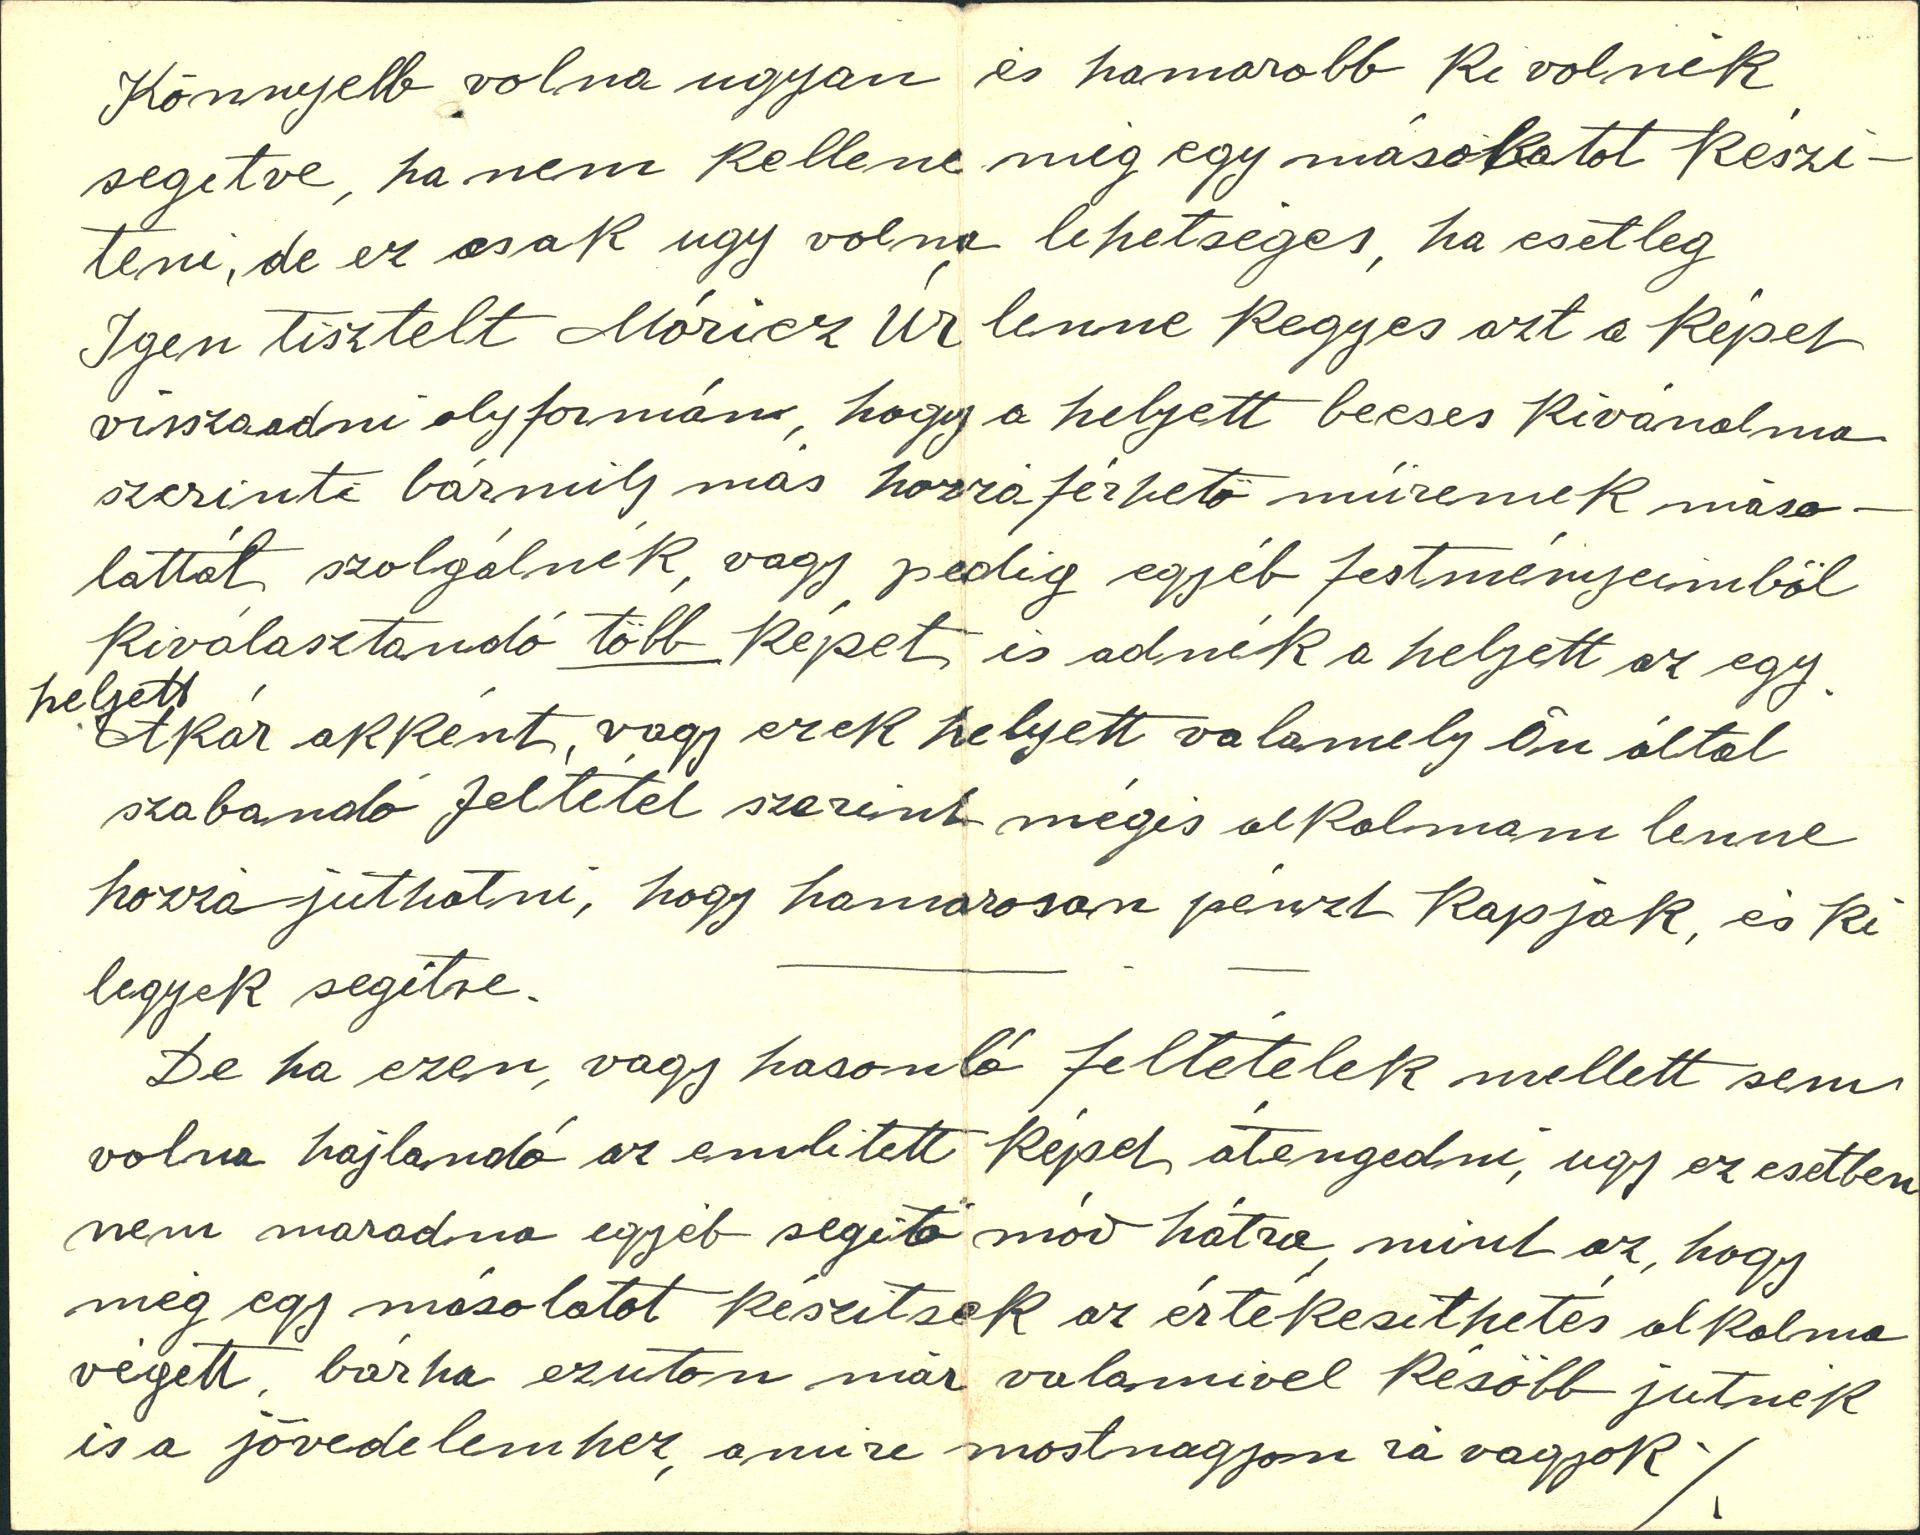 Könnyebb volna ugyan és hamarabb ki volnék
segitve, ha nem kellene még egy másolatot készi-
teni, de ez csak ugy volna lehetséges, ha esetleg
Igen tisztelt Móricz Úr lenne kegyes azt a képet
visszaadni olyformán, hogy a helyett becses kivánalma
szerinti bármily más hozzáférhető műremek máso-
lattát szolgálnék, vagy pedig egyéb festményeimből
kiválasztandó több képet is adnék a helyett az egy
helyett
Akár akként, vagy ezek helyett valamely Ön által
szabandó feltétel szerint mégis alkalmam lenne
hozzá juthatni, hogy hamarosan pénzt kapjak, és ki
legyek segitve.
De ha ezen, vagy hasonló feltételek mellett sem
volna hajlandó az emlitett képet átengedni, ugy ez esetben
nem maradna egyéb segitő mód hátra, mint az, hogy
még egy másolatot készitsek az értékesithetés alkalma
végett, bárha ezuton már valamivel később jutnék
is a jövedelemhez, amire mostnagyon rá vagyok ./.